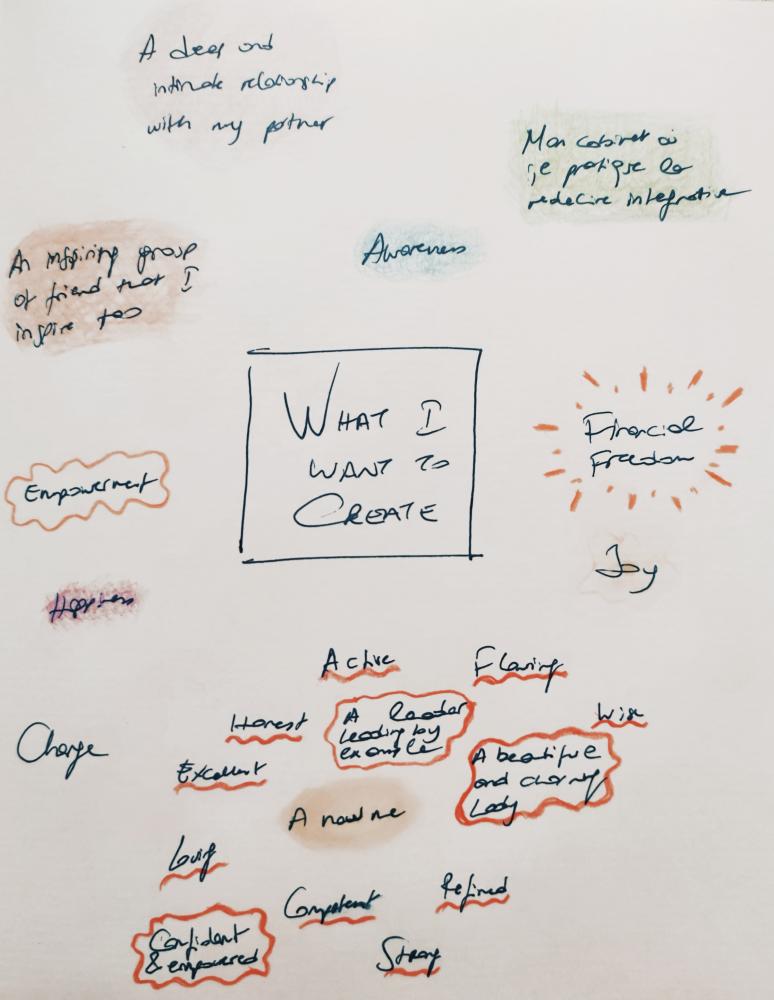 A deep and
intimate relationship
with my partner
Mon cabinet où
je pratique la
médecine integrative
An inspiring group
of friend that I
inspire too
Awareness
WHAT I
WANT TO
CREATE
Financial
Freedom
Empowerment
Joy
Happiness
Active
Flowing
Honest
A leader
leading by
example
Wise
Change
Excellent
A beautiful
and charming
Lady
A new me
Loving
Competent
Refined
Confident
& empowered
Strong